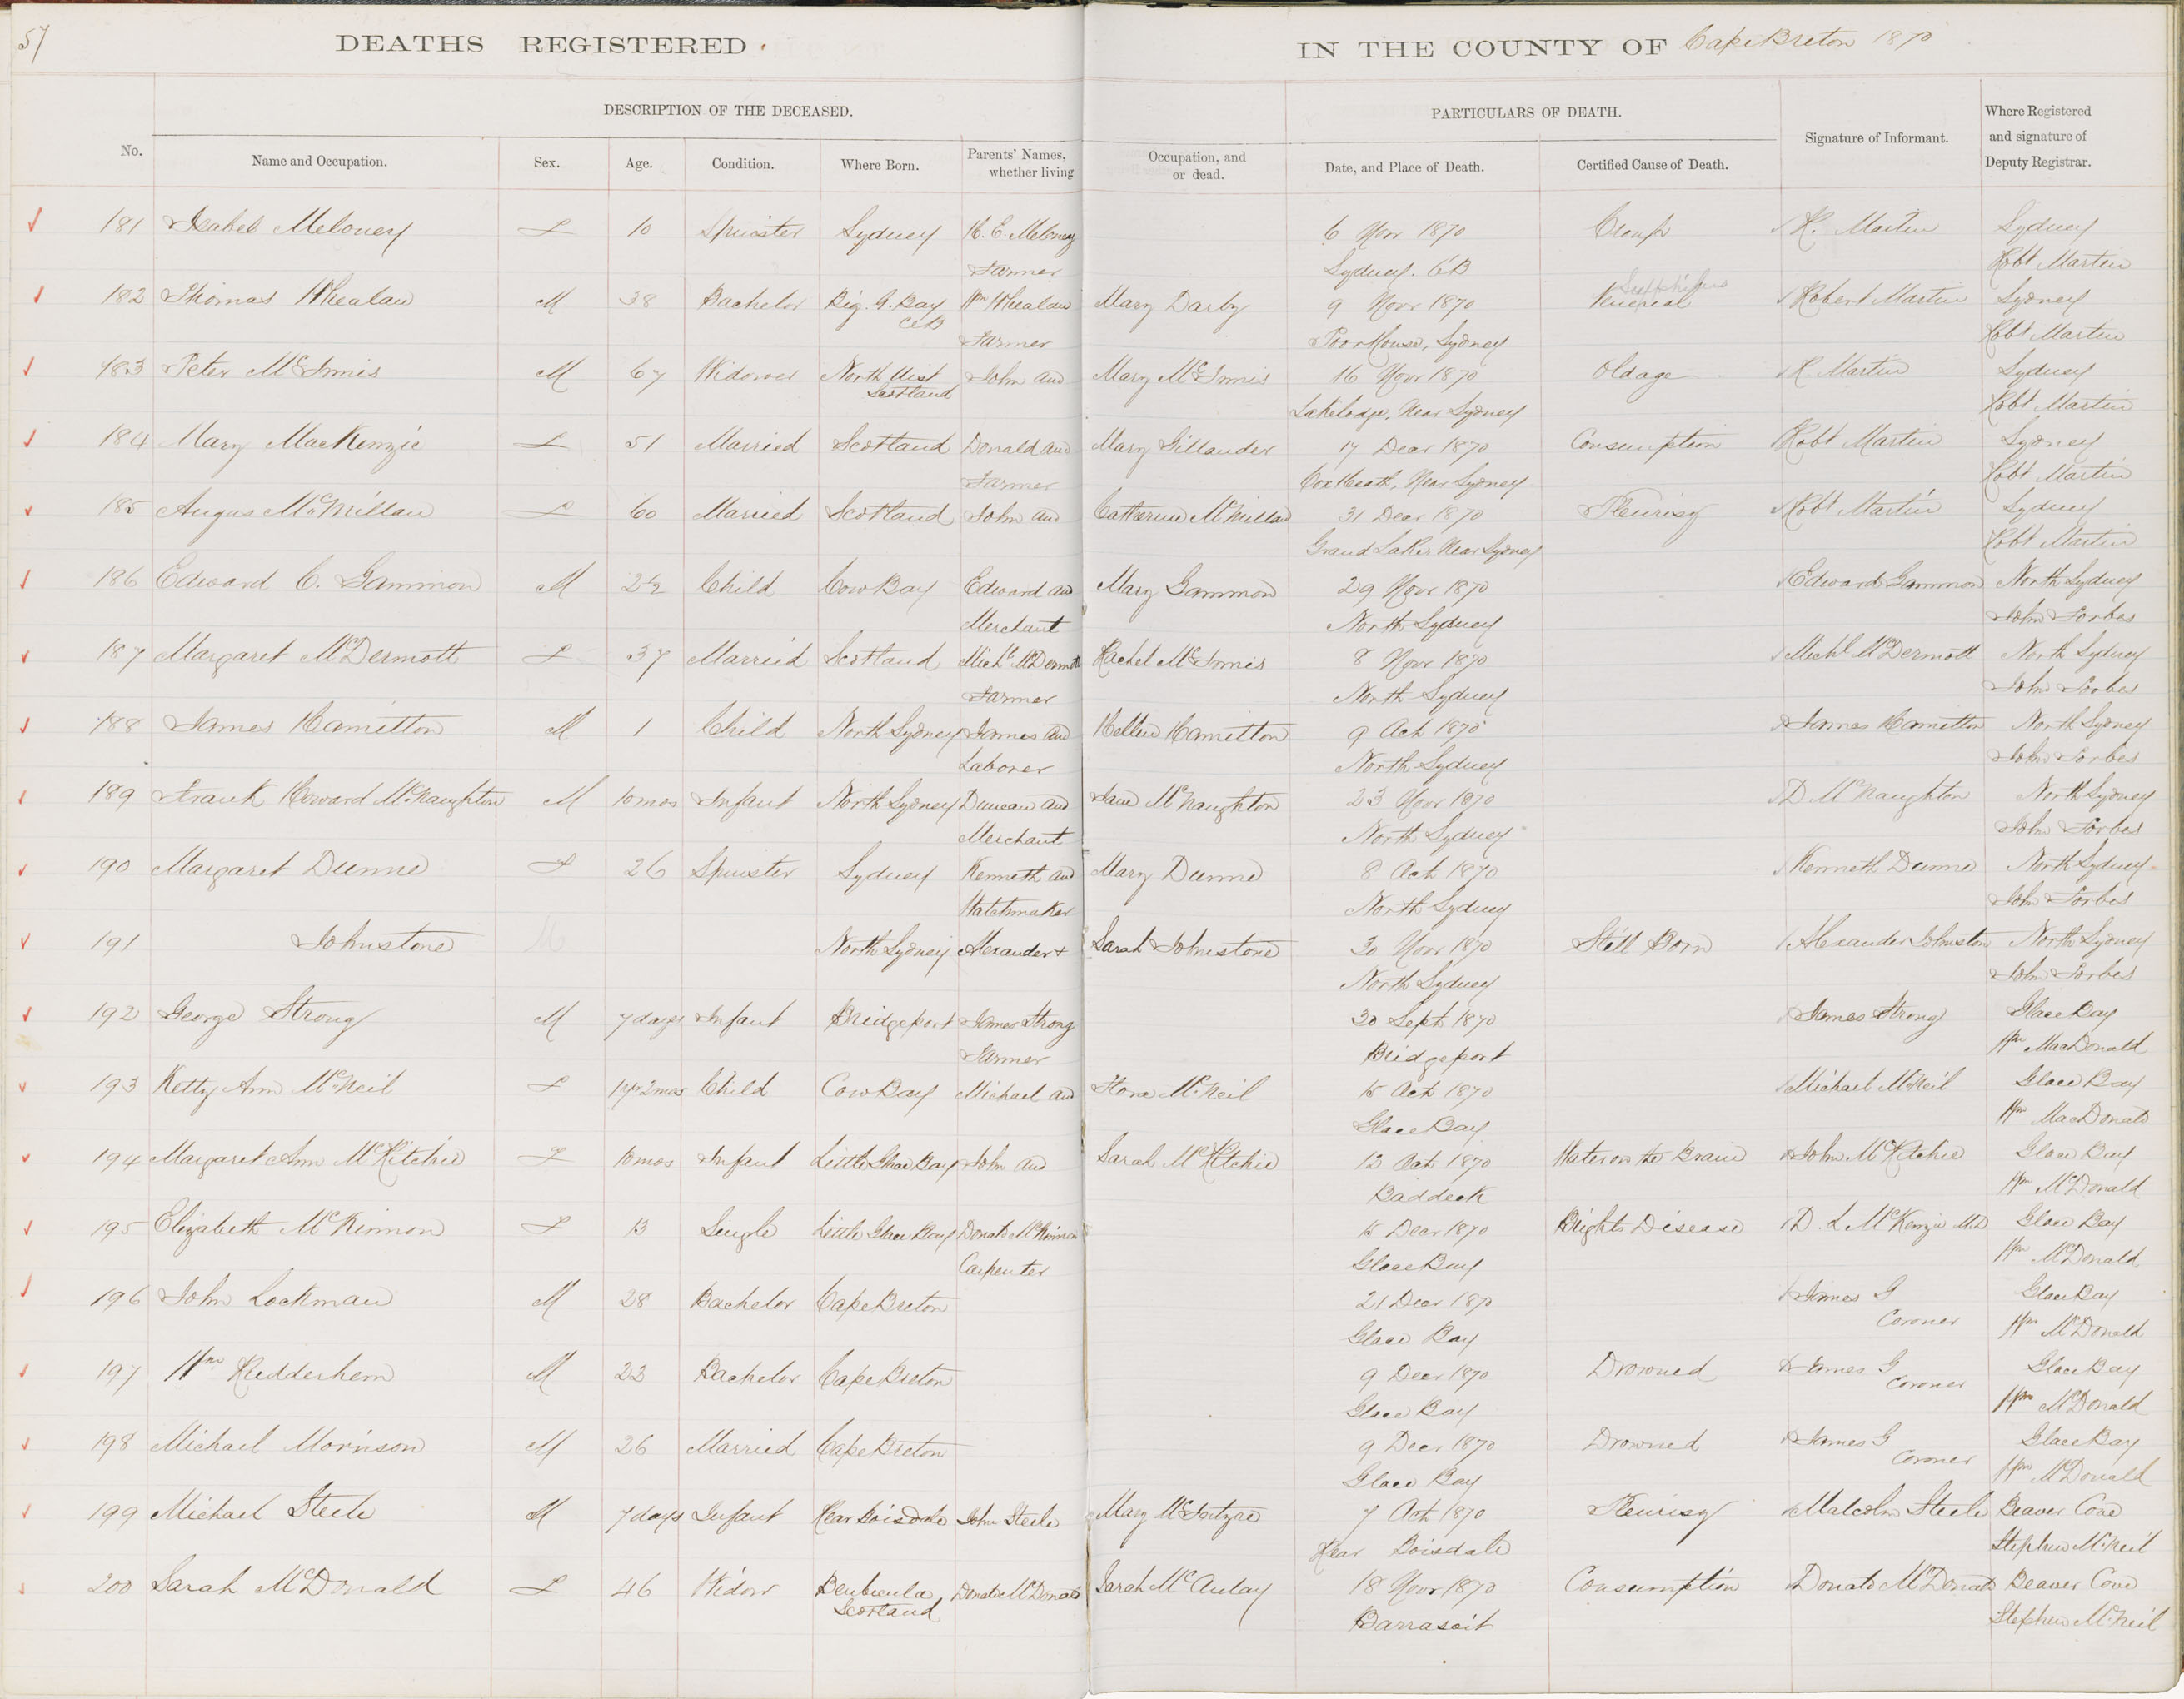 57
DEATHS REGISTERED
IN THE COUNTY OF Cape Breton 1870
DESCRIPTION OF THE DECEASED.
PARTICULARS OF DEATH.
No.
Name and Occupation.
Sex.
Age.
Condition.
Where Born.
Parents' Names, whether living
Occupation, and or dead.
Date, and Place of Death.
Certified Cause of Death.
Signature of Informant.
Where Registered and signature of Deputy Registrar.
181 Isabel Meloney F 10 Spinster Sydney H. E. Meloney 6 Novr 1870 Croup R. Martin Sydney
Farmer Sydney. CB Robt Martin
182 Thomas Whealan M 38 Bachelor Big. G. Bay Wm Whealan Mary Darby 9 Novr 1870 Venereal Robert Martin Sydney
CB Farmer Poor House, Sydney Robt Martin
183 Peter McInnis M 67 Widower North Uist John and Mary McInnis 16 Novr 1870 Old age R. Martin Sydney
Scotland Lakelodge, Near Sydney Robt Martin
184 Mary MacKenzie F 51 Married Scotland Donald and Mary Gillander 17 Decr 1870 Consumption Robt Martin Sydney
Farmer Cox Heath, Near Sydney Robt Martin
185 Angus McMillan F 60 Married Scotland John and Catherine McMillan 31 Decr 1870 Pleurisy Robt Martin Sydney
Grand Lake Near Sydney Robt Martin
186 Edward C. Gammon M 2½ Child Cow Bay Edward and Mary Gammon 29 Novr 1870 Edward Gammon North Sydney
Merchant North Sydney John Forbes
187 Margaret McDermott F 37 Married Scotland Michl McDermott Rachel McInnis 8 Novr 1870 Michl McDermott North Sydney
Farmer North Sydney John Forbes
188 James Hamilton M 1 Child North Sydney James and Hellen Hamilton 9 Oct 1870 James Hamilton North Sydney
Laborer North Sydney John Forbes
189 Frank Howard McNaughton M 10 mos Infant North Sydney Duncan and Jane McNaughton 23 Novr 1870 D McNaughton North Sydney
Merchant North Sydney John Forbes
190 Margaret Dunne F 26 Spinster Sydney Kenneth and Mary Dunne 8 Oct 1870 Kenneth Dunne North Sydney
Watchmaker North Sydney John Forbes
191 Johnstone M North Sydney Alexander + Sarah Johnstone 30 Novr 1870 Still Born Alexander Johnston North Sydney
North Sydney John Forbes
192 George Strong M 7 days Infant Bridgeport James Strong 30 Sept 1870 James Strong Glace Bay
Farmer Bridgeport Wm MacDonald
193 Ketty Ann McNeil F 1 yr 2 mos Child Cow Bay Michael and Flora McNeil 15 Oct 1870 Michael McNeil Glace Bay
Glace Bay Wm MacDonald
194 Margaret Ann McKitchie F 10 mos Infant Little Glace Bay John and Sarah McKitchie 12 Oct 1870 Water on the Brain John McKitchie Glace Bay
Baddeck Wm McDonald
195 Elizabeth McKinnon F 13 Single Little Glace Bay Donald McKinnon 15 Decr 1870 Brights Disease D. L McKenzie MD Glace Bay
Carpenter Glace Bay Wm McDonald
196 John Lockman M 28 Bachelor Cape Breton 21 Decr 1870 James G Glace Bay
Glace Bay Coroner Wm McDonald
197 Wm Hedderhem M 23 Bachelor Cape Breton 9 Decr 1870 Drowned James G Glace Bay
Glace Bay Coroner Wm McDonald
198 Michael Morrison M 26 Married Cape Breton 9 Decr 1870 Drowned James G Glace Bay
Glace Bay Coroner Wm McDonald
199 Michael Steele M 7 days Infant Rear Boisdale John Steele Mary McIntyre 7 Oct 1870 Pleurisy Malcolm Steele Beaver Cove
Rear Boisdale Stephen McNeil
200 Sarah McDonald F 46 Widow Benbecula Donald McDonald Sarah McAulay 18 Novr 1870 Consumption Donald McDonald Beaver Cove
Scotland Barrasoit Stephen McNeil